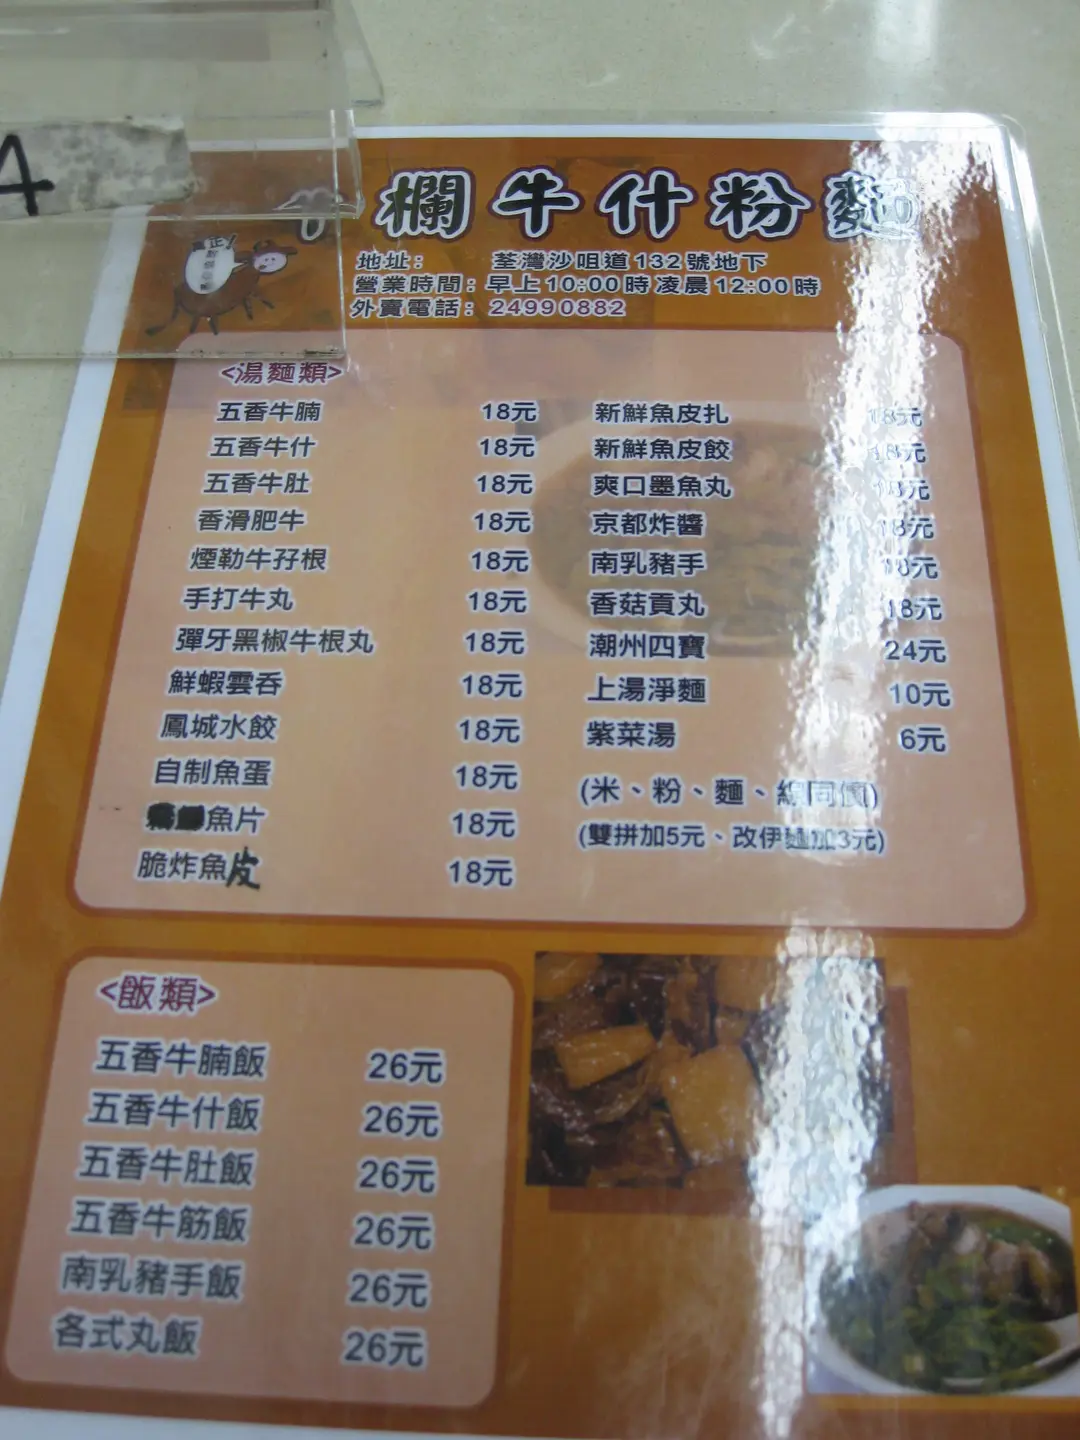 A
欄牛什粉麵
地址： 荃灣沙咀道132號地下
營業時間：早上10:00時凌晨12:00時
外賣電話：24990882
<湯麵類>
五香牛腩 18元
五香牛什 18元
五香牛肚 18元
香滑肥牛 18元
煙勒牛孖根 18元
手打牛丸 18元
彈牙黑椒牛根丸 18元
鮮蝦雲吞 18元
鳳城水餃 18元
自制魚蛋 18元
魚片 18元
脆炸魚皮 18元
新鮮魚皮扎 18元
新鮮魚皮餃 18元
爽口墨魚丸 18元
京都炸醬 18元
南乳豬手 18元
香菇貢丸 18元
潮州四寶 24元
上湯淨麵 10元
紫菜湯 6元
(米、粉、麵、線同價)
(雙拼加5元、改伊麵加3元)
<飯類>
五香牛腩飯 26元
五香牛什飯 26元
五香牛肚飯 26元
五香牛筋飯 26元
南乳豬手飯 26元
各式丸飯 26元